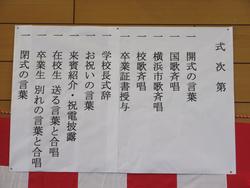 式次第
一 開式の言葉
一 国歌斉唱
一 横浜市歌斉唱
一 校歌斉唱
一 卒業証書授与
一 学校長式辞
一 お祝いの言葉
一 来賓紹介・祝電披露
一 在校生 送る言葉と合唱
一 卒業生 別れの言葉と合唱
一 閉式の言葉